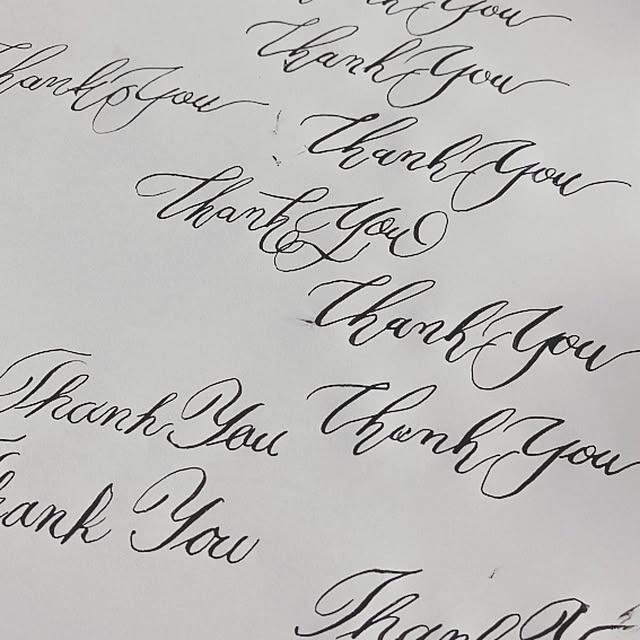 You
Thank You
Thank You
Thank You
Thank You
Thank You
Thank You
Thank You
hank You
Thank